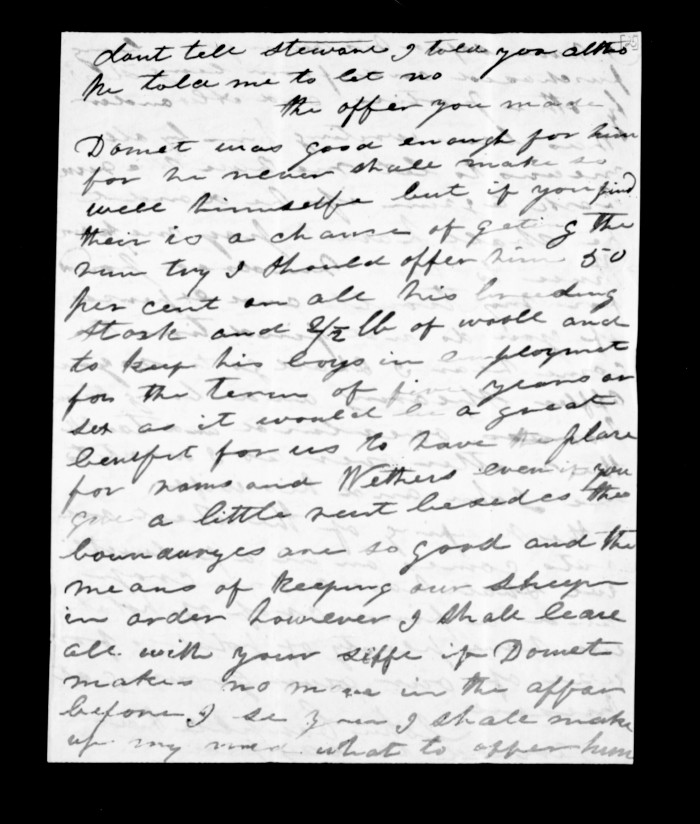 dont tell stewart I told you altho
he told me to let no
the offer you made
Domet was good enough for him
for he never shall make so
well himselfe but if you find
their is a chance of geting the
run try I should offer him 50
per cent on all his breeding
stock and 2/2 lb of wooll and
to keep his boys in employmet
for the term of five years or
sex as it would be a great
benefit for us to have the place
for rams and Wethers even if you
give a little rent besedes the
boundaryes are so good and the
means of keeping our sheep
in order however I shall leave
all with your siffe if Domet
makes no move in the affair
before I se you I shall make
up my mind what to offer him